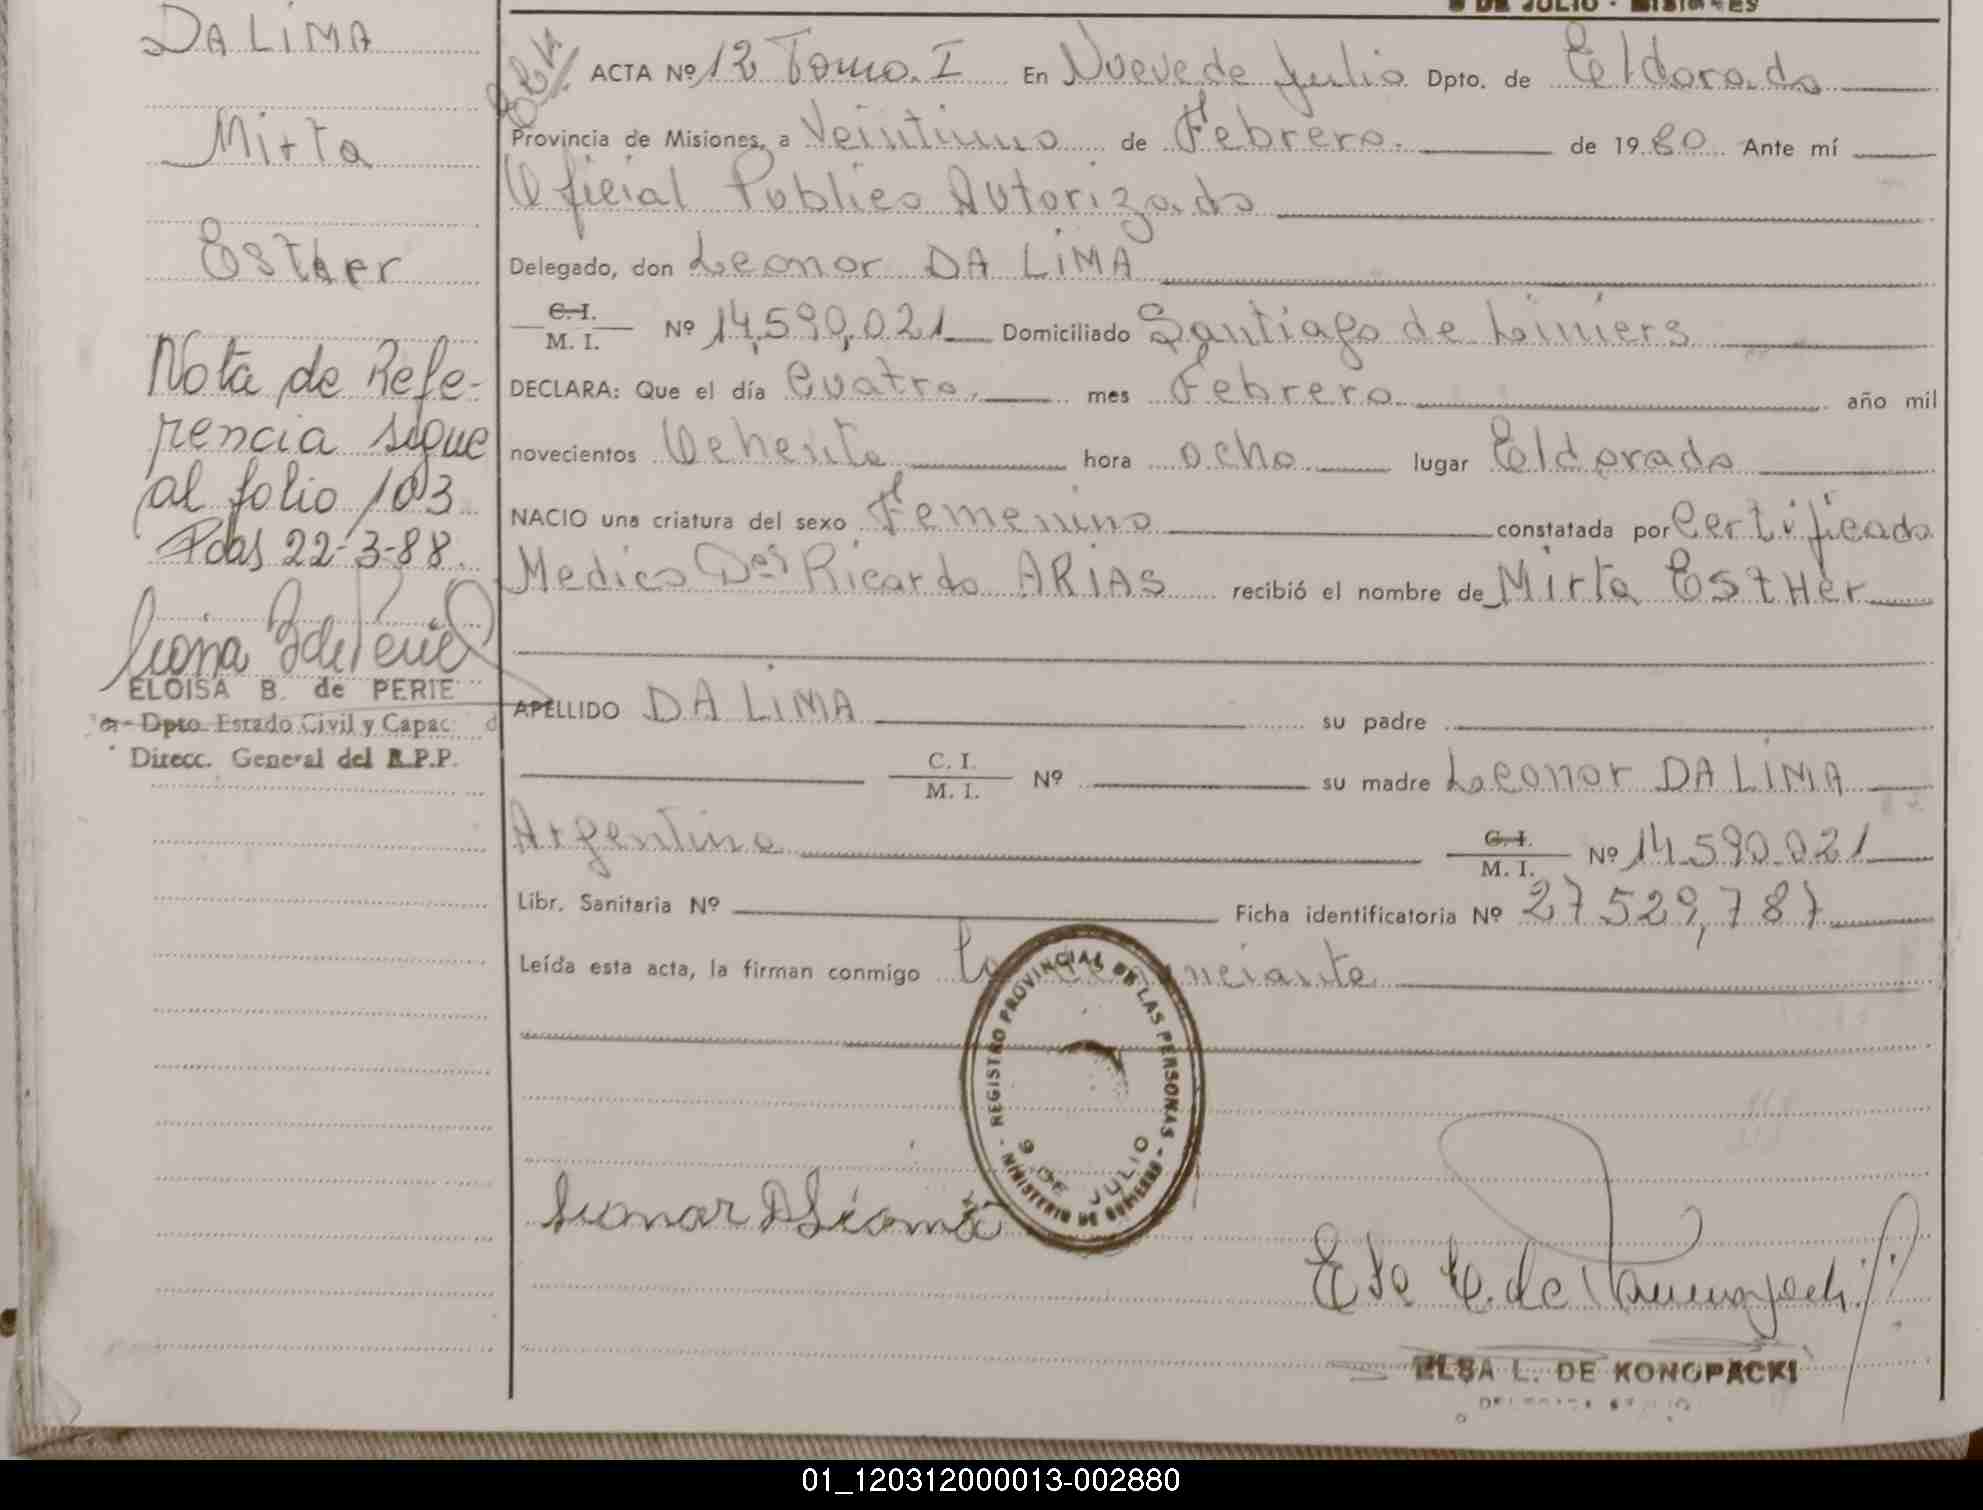 9 DE JULIO - MISIONES
DA LiMA
Mirta
Esther
Nota de Refe-
rencia sigue
al folio 103
Pdas 22-3-88.
ELOISA B. de PERIE
Dpto. Estado Civil y Capac. d
Direcc. General del R.P.P.
ACTA Nº 12 Tomo. I En Nueve de Julio Dpto. de Eldorado
Provincia de Misiones, a Veintiuno de Febrero. de 1980 Ante mí
Oficial Publico Autorizado
Delegado, don Leonor DA LiMA
C. I.
M. I. Nº 14,590,021 Domiciliado Santiago de Liniers
DECLARA: Que el día Cuatro, mes Febrero año mil
novecientos Ochenta hora ocho lugar Eldorado
NACIO una criatura del sexo Femenino constatada por Certificado
Medico Ricardo ARIAS recibió el nombre de Mirta EstHer
APELLIDO DA LiMA su padre
C. I.
M. I. Nº su madre Leonor DA LiMA
Argentina C. I.
M. I. Nº 14.590.021
Libr. Sanitaria Nº Ficha identificatoria Nº 27529,787
Leída esta acta, la firman conmigo La
REGISTRO PROVINCIAL DE LAS PERSONAS - MINISTERIO DE GOBIERNO -
9 DE JULIO
ELSA L. DE KONOPACKI
01_120312000013-002880